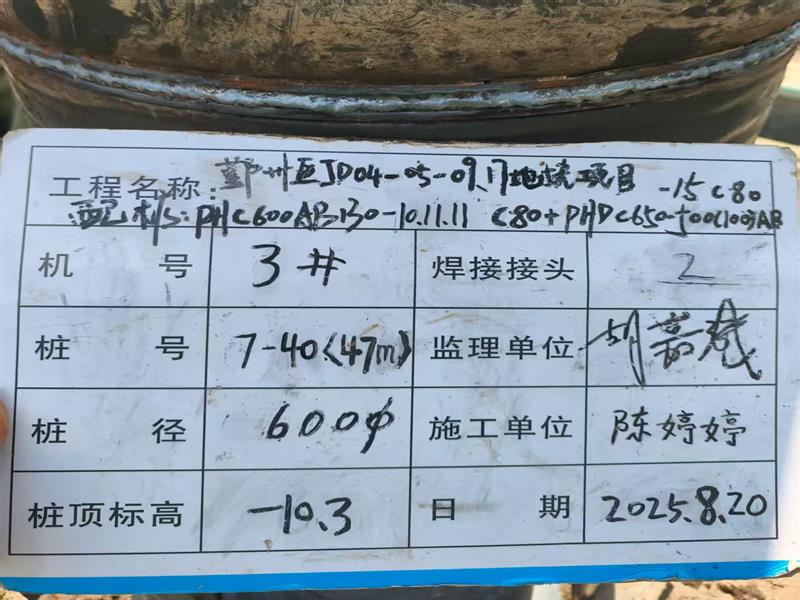 工程名称: 鄞州区JD04-05-09.17地块项目 -15 C80
配桩: PHC600AB130-10.11.11 C80+PHDC650-500(100)AB
机 号 3# 焊接接头 2
桩 号 7-40(47m) 监理单位
桩 径 600φ 施工单位 陈婷婷
桩顶标高 -10.3 日 期 2025.8.20